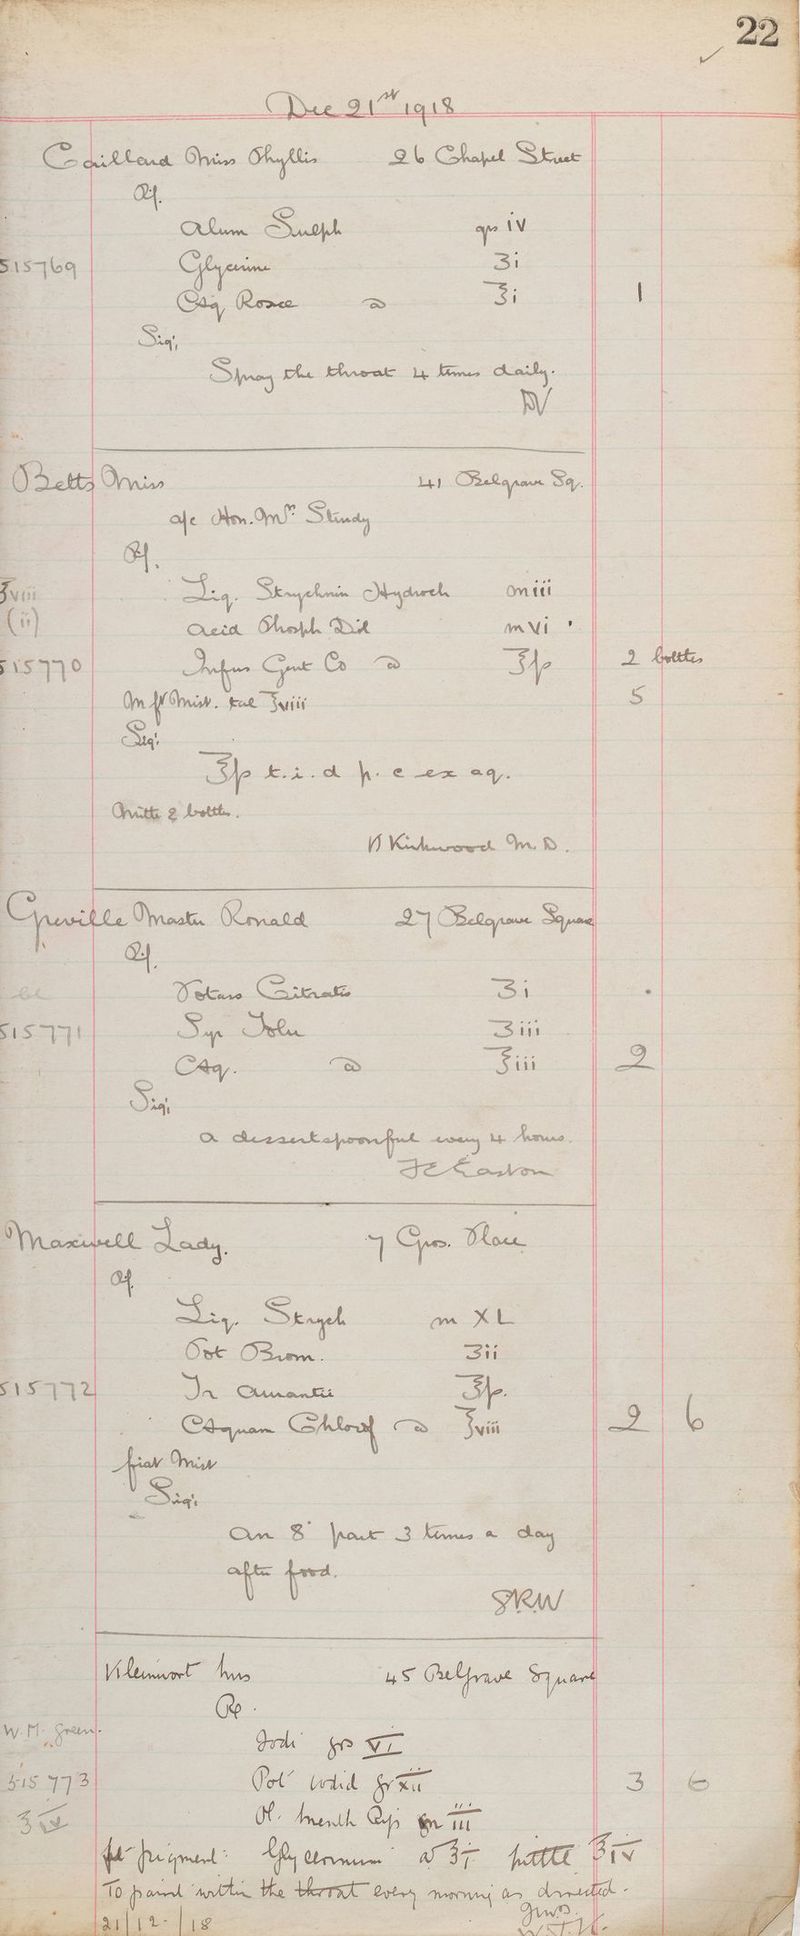 22
Dec 21st 1918
Gaillard Miss Phyllis 26 Chapel Street
Rx.
Alum Sulph grs iv
515769 Glycerine ʒi
Aq Rosae ad ℥i 1
Sig:
Spray the throat 4 times daily.
DV
Betts Miss 41 Belgrave Sq.
a/c Hon. Mrs
Rx.
℥viii Liq. Strychnin Hydroch miii
(ii) Acid Phosph Dil mvi
515770 Infus Gent Co ad ℥ſs 2 bottles
M ft Mist. tal ℥viii 5
Sig:
℥ſs t.i.d p.c ex aq.
Mitte 2 bottles.
Kirkwood M.D.
Greville Master Ronald 27 Belgrave Square
Rx.
Potass Citratis ʒi
515771 Syr Tolu ʒiii
Aq. ad ℥iii 2
Sig:
a dessertspoonful every 4 hours.
F E Easton
Maxwell Lady. 7 Gros. Place
Rx.
Liq. Strych m XL
Pot Brom. ʒii
515772 Tr Aurantii ℥ſs.
Aquam Chlorof ad ℥viii 2 6
fiat Mist
Sig:
An 8th part 3 times a day
after food.
S.R.W
Kleinwort Mrs 45 Belgrave Square
Rx.
W.M. Green. Iodi grs VI
515773 Pot iodid gr xii 3 6
ʒiv Ol. Menth Pip m iii
ft pigment: Glycerinum ad ℥i mitte ʒiv
To paint within the throat every morning as directed.
21/12/18